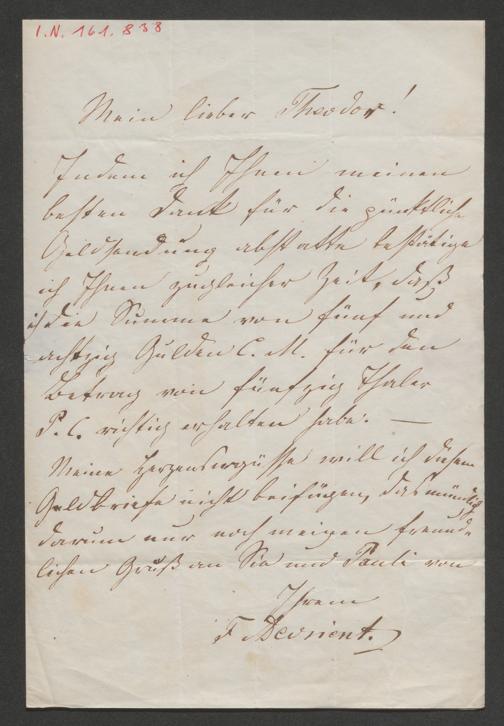 I.N. 161.838
Mein lieber Theodor!
Indem ich Ihnen meinen
besten Dank für die pünktliche
Geldsendung abstatte bestätige
ich Ihnen zugleicher Zeit, daß
ich die Summe von fünf und
achtzig Gulden C. M. für den
Betrag von fünfzig Thaler
P. C. richtig erhalten habe. —
Meine Herzensergüsse will ich diesem
Geldbriefe nicht beifügen, das mündlich
darum nur noch meinen freund-
lichen Gruß an Sie und Pauli von
Ihrem
F Devrient.